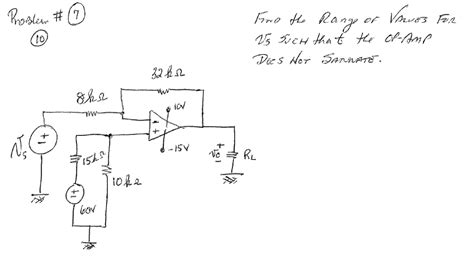 Problem # 7
10
Find the Range of Values For
Vs such that the OP-AMP
Does Not Saturate.
32kΩ
8kΩ
10V
-15V
Vs
15kΩ
10kΩ
Vo
RL
60V